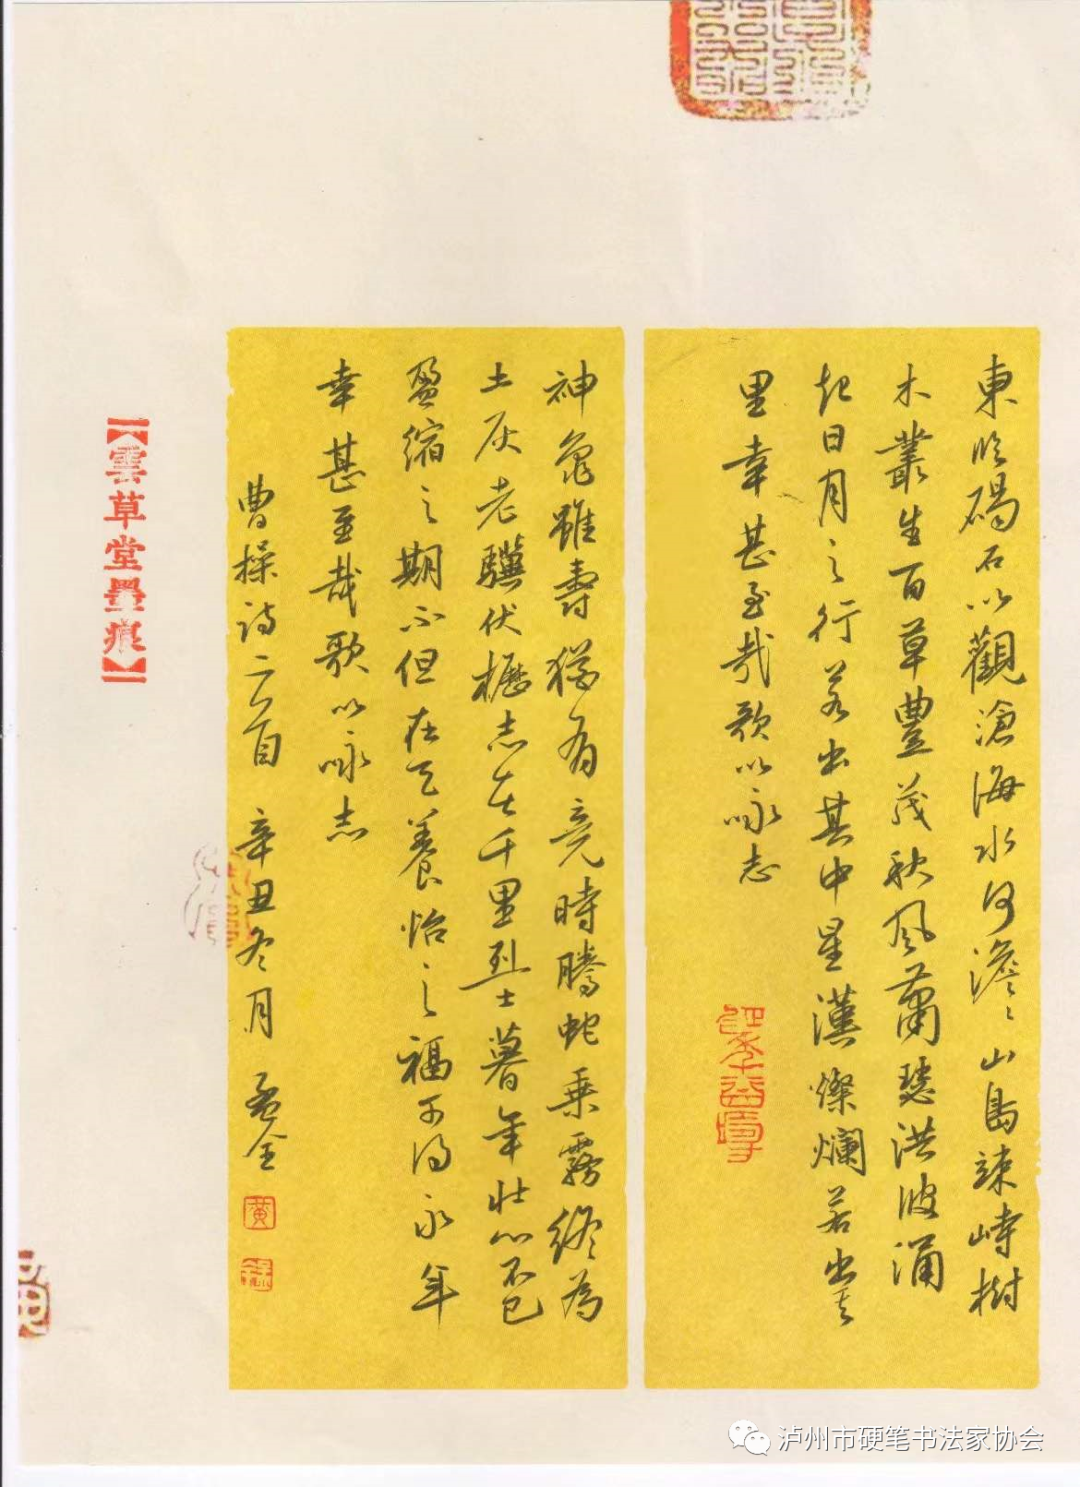 東臨碣石以觀滄海水何澹〻山島竦峙樹
木叢生百草豐茂秋風蕭瑟洪波涌
起日月之行若出其中星漢燦爛若出其
里幸甚至哉歌以咏志
神龜雖壽猶有竟時騰蛇乘霧終為
土灰老驥伏櫪志在千里烈士暮年壯心不已
盈縮之期不但在天養怡之福可得永年
幸甚至哉歌以咏志
曹操詩二首 辛丑冬月
黄
【雲草堂墨痕】
泸州市硬笔书法家协会